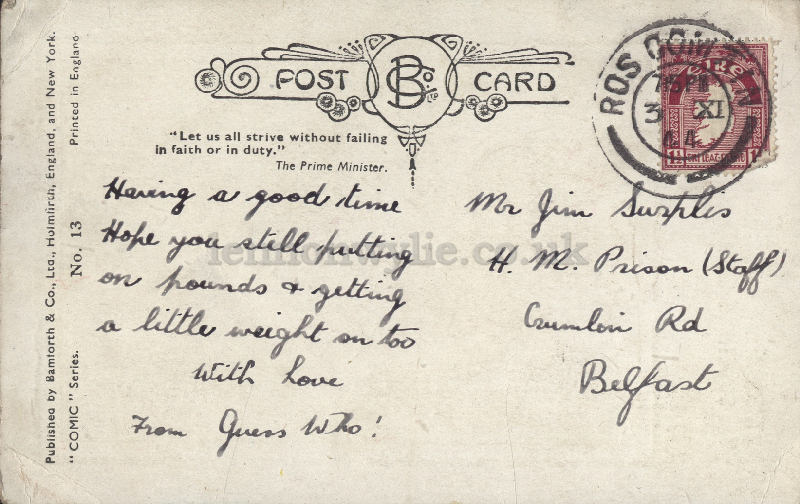 Published by Bamforth & Co., Ltd., Holmfirth, England, and New York.
"COMIC" Series.
No. 13
Printed in England
POST CARD
B Co. LTD
"Let us all strive without failing
in faith or in duty."
The Prime Minister.
ROS COM
3 XI
44
éire
Having a good time
Hope you still putting
on pounds & getting
a little weight on too
With Love
From Guess Who!
Mr Jim Surples
H. M. Prison (Staff)
Crumlin Rd
Belfast
lennonwylie.co.uk